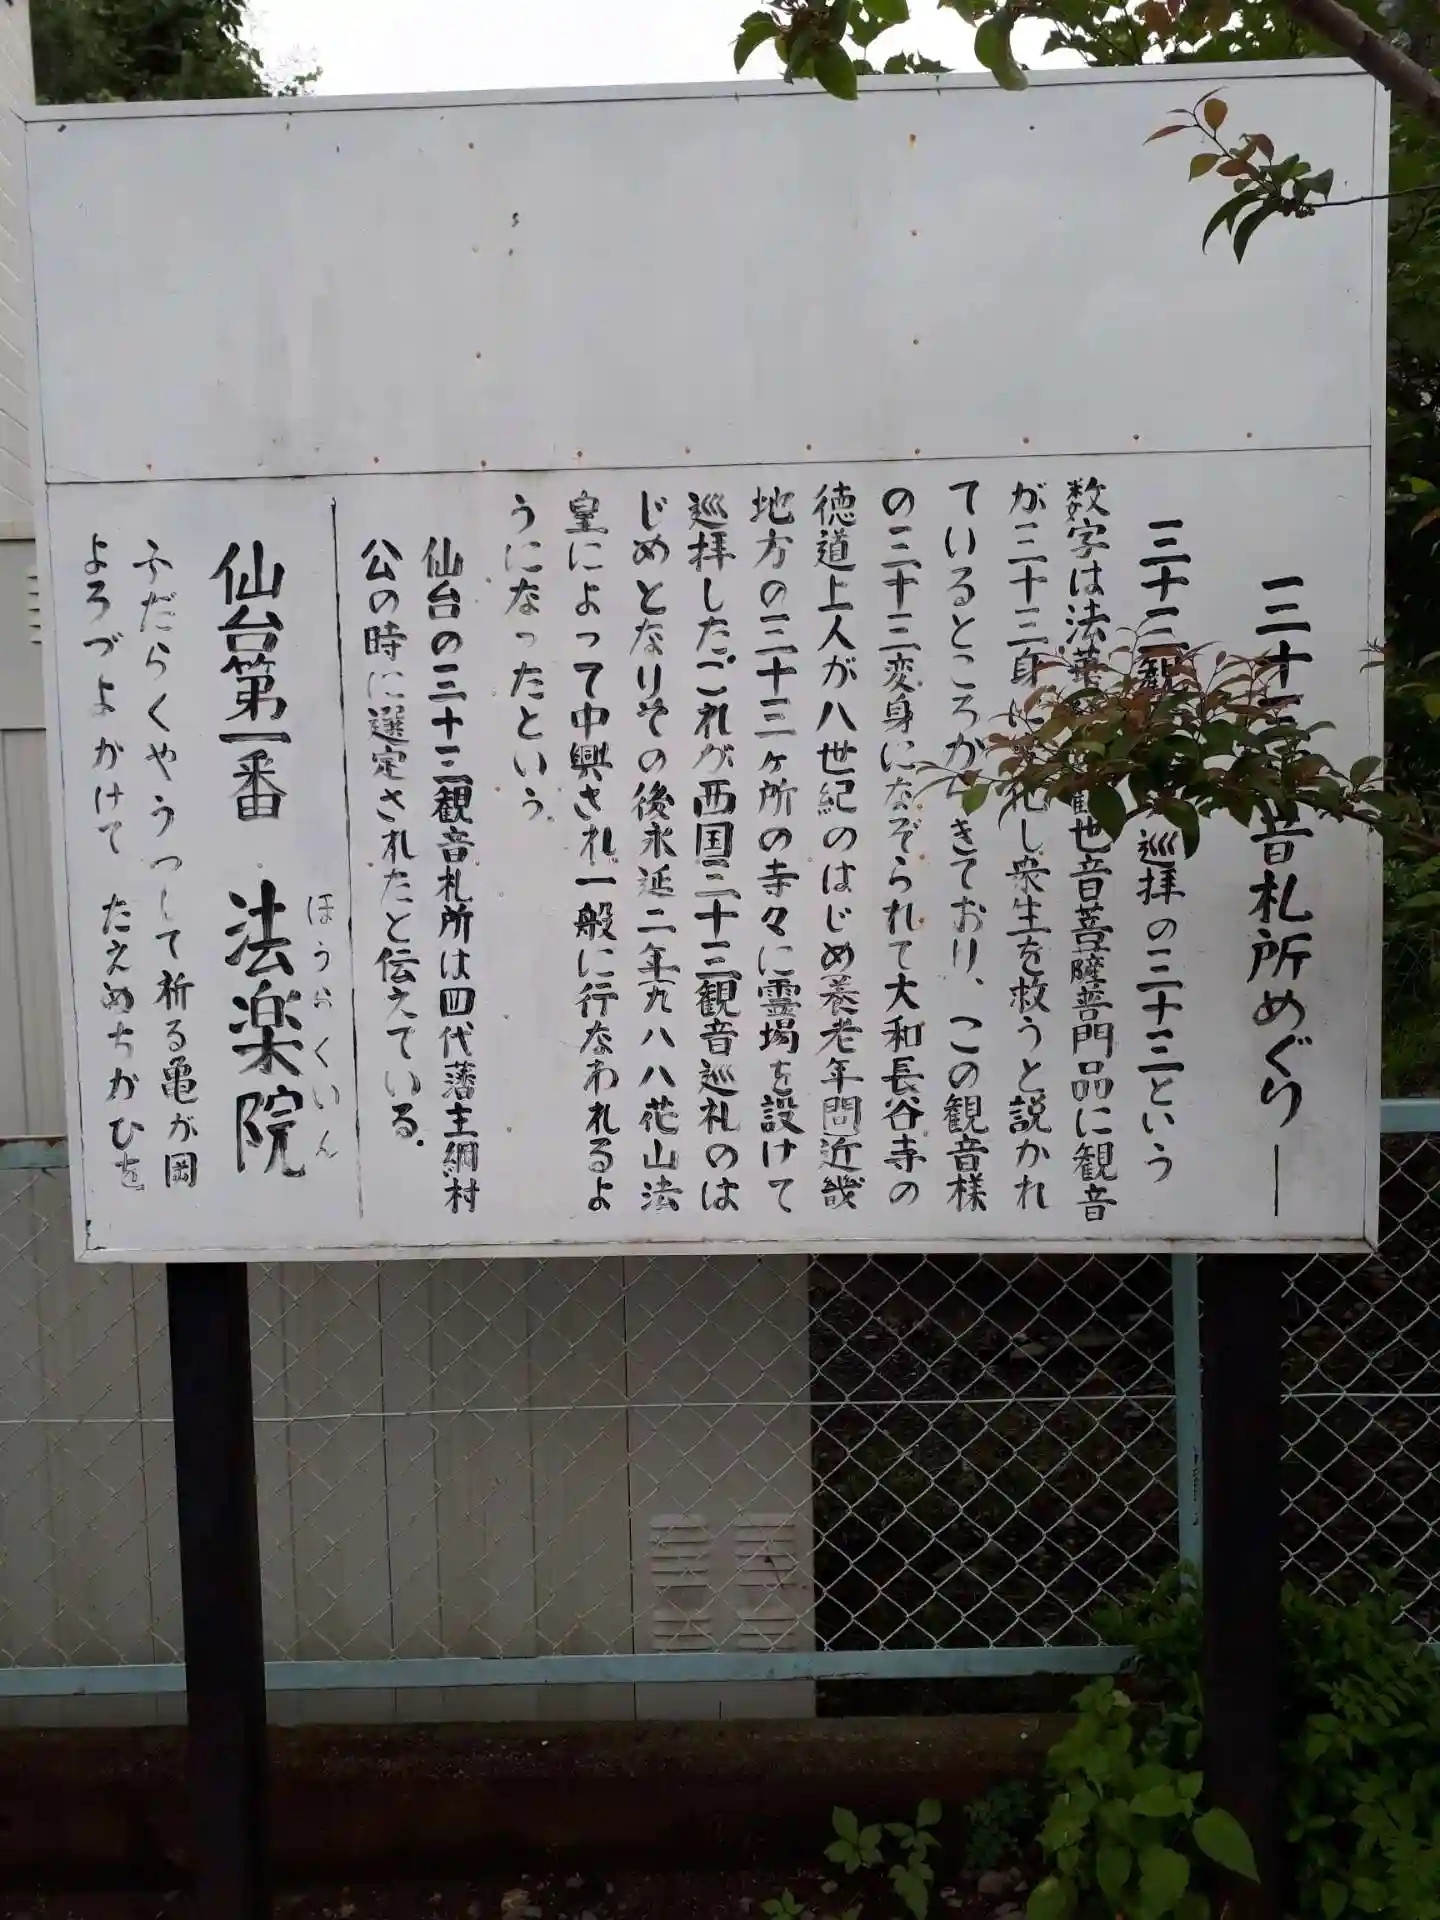 三十三 音札所めぐりー
三十三観 巡拝の三十三という
数字は法華 観世音菩薩普門品に観音
が三十三身に 化し衆生を救うと説かれ
ているところから きており、この観音様
の三十三変身になぞられて大和長谷寺の
徳道上人が八世紀のはじめ養老年間近畿
地方の三十三ヶ所の寺々に霊場を設けて
巡拝したこれが西国三十三観音巡礼のは
じめとなりその後永延二年九八八花山法
皇によって中興され一般に行なわれるよ
うになったという。
仙台の三十三観音札所は四代藩主綱村
公の時に選定されたと伝えている。
仙台第一番 法楽院
ほうらくいん
ふだらくやうつして祈る亀が岡
よろづよかけて たえぬちかひを